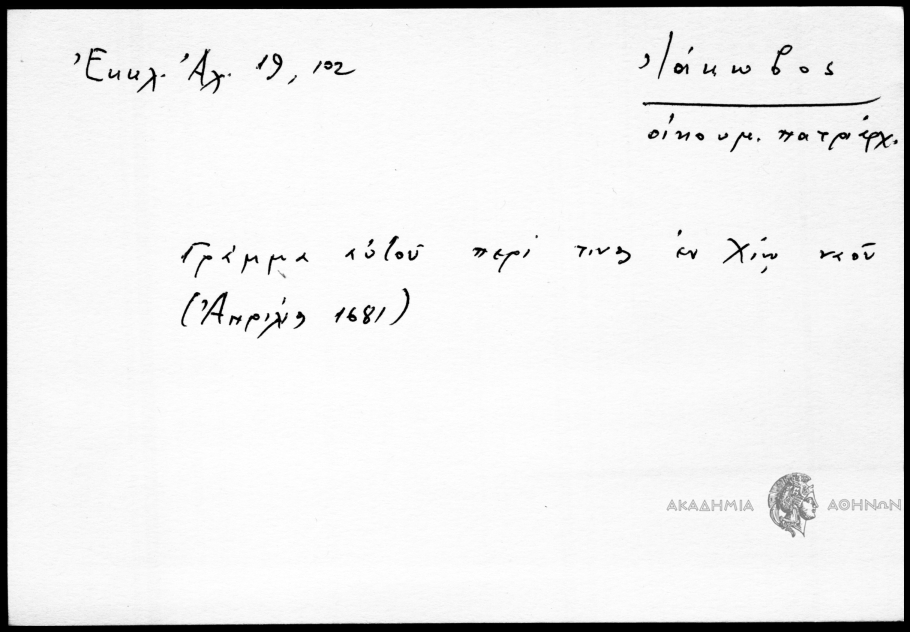 Ἐκκλ. Ἀλ. 19, 102
Ἰάκωβος
οἰκουμ. πατριάρχ.
Γράμμα αὐτοῦ περί τινος ἐν Χίῳ ναοῦ
(Ἀπρίλιος 1681)
ΑΚΑΔΗΜΙΑ ΑΘΗΝΩΝ